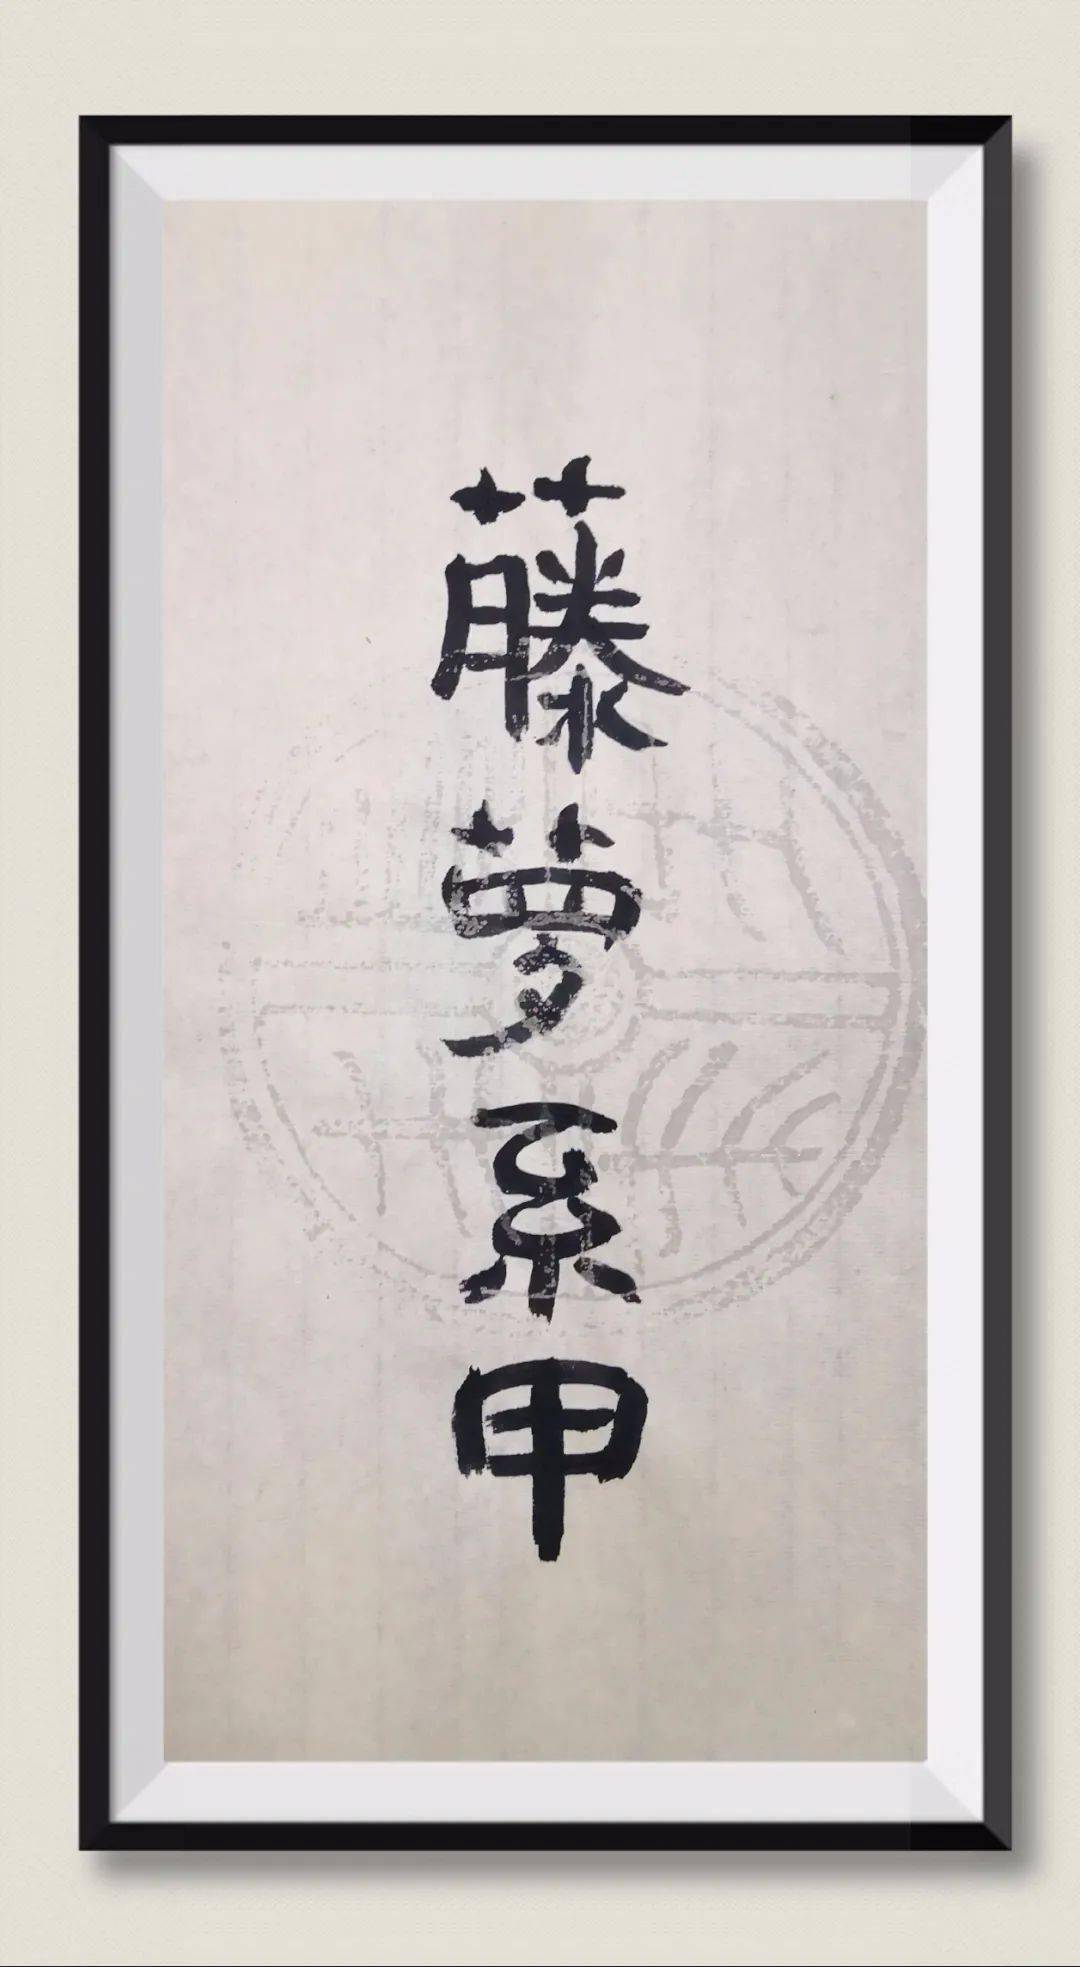 藤萝系甲